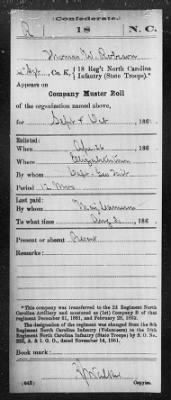 (Confederate.)
R 18 N. C.
Thomas W. Robinson
Co. K, 18 Reg't North Carolina
Infantry (State Troops).*
Appears on
Company Muster Roll
of the organization named above,
for Sept & Oct, 186
Enlisted:
When 26, 186
Where Elizabethtown
By whom
Period 12 Mos
Last paid:
By whom Maj
To what time Aug 3, 186
Present or absent Present
Remarks:
*This company was transferred to the 36 Regiment North
Carolina Artillery and mustered as (1st) Company B of that
regiment December 31, 1861, and February 28, 1862.
The designation of the regiment was changed from the 8th
Regiment North Carolina Infantry (Volunteers) to the 18th
Regiment North Carolina Infantry (State Troops) by S. O. No.
222, A. & I. G. O., dated November 14, 1861.
Book mark:
(642) Copyist.